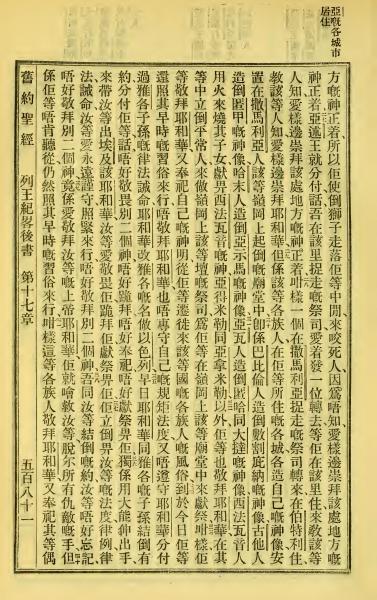 亞嘅各城市
居住
方嘅神正着、所以佢使倒獅子走落佢等中間、來咬死人、因爲唔知愛樣邊崇拜該處地方嘅
神正着、亞述王就分付話、吾在該里捉走嘅祭司、愛着發一位轉去等佢在該里住、來教該等
人知愛樣邊崇拜該處地方嘅神正着、咁樣一個在撒馬利亞捉走嘅祭司轉來在伯特利住、
教該等人知愛樣邊崇拜耶和華、但係該等各族人、在佢等所住嘅各城、各造自己嘅神像、安
置在撒馬利亞人、該等嶺岡上起倒嘅廟堂中、卽係巴比倫人造倒數割庇納嘅神像、古他人
造倒匿甲嘅神像、哈末人造倒亞示馬嘅神像、亞瓦人造倒匿哈同大撻嘅神像、西法瓦音人
用火來燒其子女獻畀西法瓦音嘅神亞得米勒同亞拿米勒、以外佢等也敬拜耶和華、在其
等中立倒平常人來做嶺岡上該等壇嘅祭司、爲佢等在嶺岡上該等廟堂中來獻祭、咁樣佢
等敬拜耶和華、又奉祀自己嘅神明、從佢等遷徙來該等國嘅各族人嘅風俗、到於今日佢等
還照其早時嘅習俗來行、唔敬拜耶和華、也唔專守自己嘅規矩法度、又唔遵守耶和華分付
過雅各子孫嘅律法誡命、耶和華改雅各嘅名做以色列、早日耶和華同雅各嘅子孫結倒有
約、分付佢等話、唔好敬畏別二個神、唔好跪拜唔好奉祀、唔好獻祭畀佢、獨係用大能伸出手
來帶汝等出埃及該耶和華、汝等愛敬畏佢、跪拜佢、獻祭畀佢、佢立倒畀汝等嘅法度律例律
法誡命、汝等愛永遠謹守照緊來行、唔好敬拜別二個神、吾同汝等結倒嘅約、汝等唔好忘記、
唔好敬拜別二個神、竟係愛敬拜汝等嘅上帝耶和華、佢就會救汝等脫尔所有仇敵嘅手、但
係佢等唔肯聽從、仍然照其早時嘅習俗來行、咁樣這等各族人、敬拜耶和華、又奉祀其等偶
舊約聖經　列王紀畧後書　第十七章　五百八十一